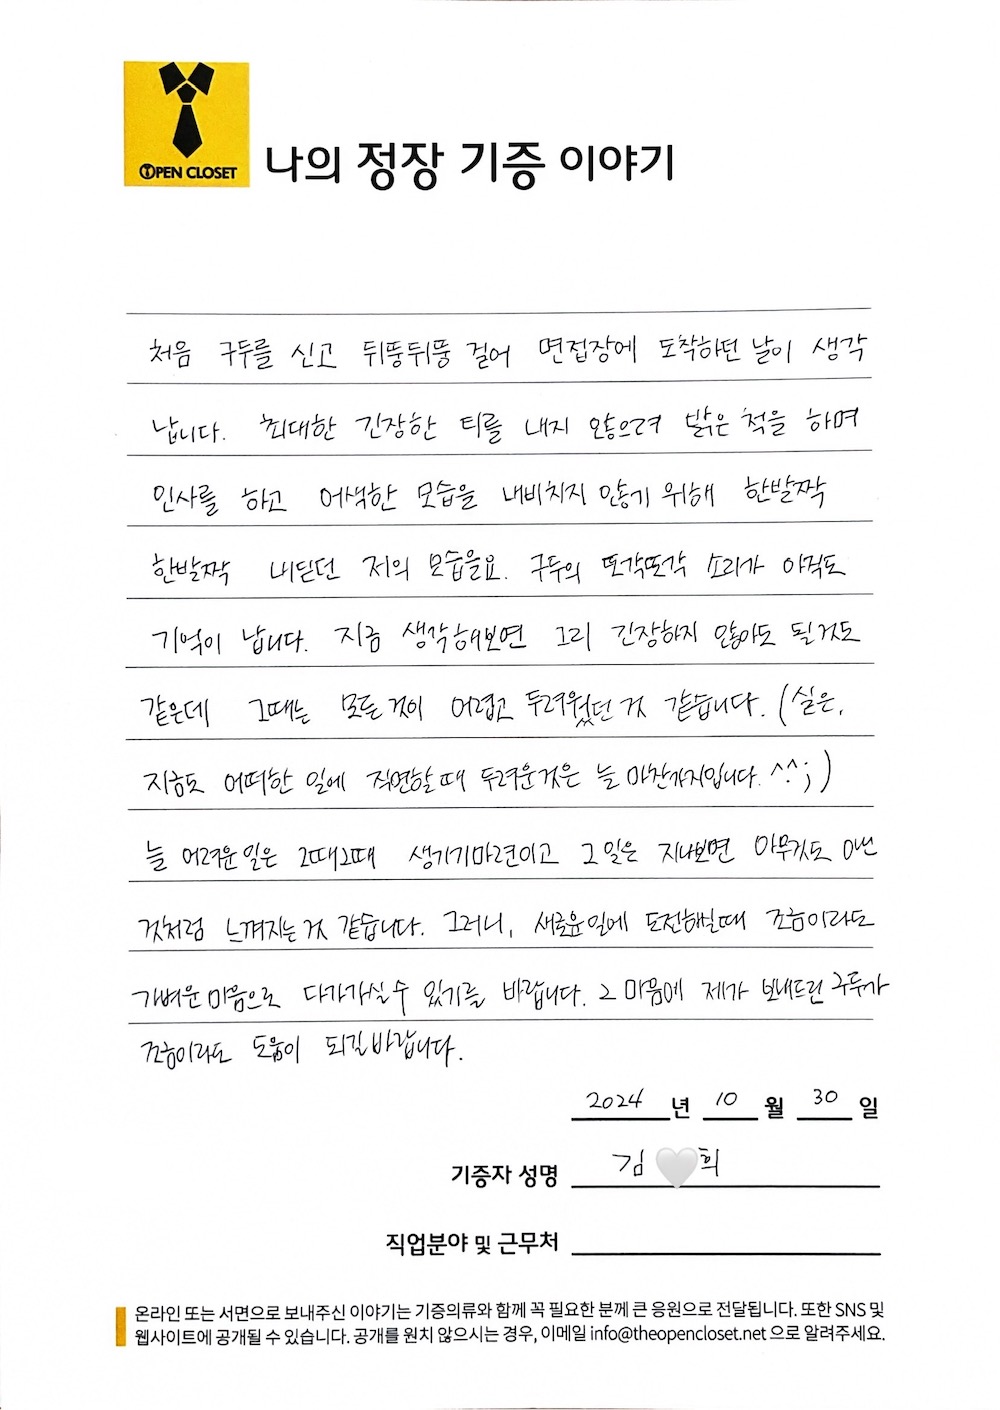 OPEN CLOSET
나의 정장 기증 이야기
처음 구두를 신고 뒤뚱뒤뚱 걸어 면접장에 도착하던 날이 생각
납니다. 최대한 긴장한 티를 내지 않으려 밝은 척을 하며
인사를 하고 어색한 모습을 내비치지 않기 위해 한발짝
한발짝 내딛던 저의 모습을요. 구두의 또각또각 소리가 아직도
기억이 납니다. 지금 생각해보면 그리 긴장하지 않아도 될것도
같은데 그때는 모든것이 어렵고 두려웠던 것 같습니다. (실은,
지금도 어떠한 일에 직면할때 두려운것은 늘 마찬가지입니다.^^;;)
늘 어려운일은 그때그때 생기기마련이고 그 일은 지나보면 아무것도 아닌
것처럼 느껴지는것 같습니다. 그러니, 새로운일에 도전하실때 조금이라도
가벼운마음으로 다가가실수 있기를 바랍니다. 그 마음에 제가 보내드린 구두가
조금이라도 도움이 되길바랍니다.
2024 년 10 월 30 일
기증자 성명 김 희
직업분야 및 근무처
온라인 또는 서면으로 보내주신 이야기는 기증의류와 함께 꼭 필요한 분께 큰 응원으로 전달됩니다. 또한 SNS 및
웹사이트에 공개될 수 있습니다. 공개를 원치 않으시는 경우, 이메일 info@theopencloset.net 으로 알려주세요.